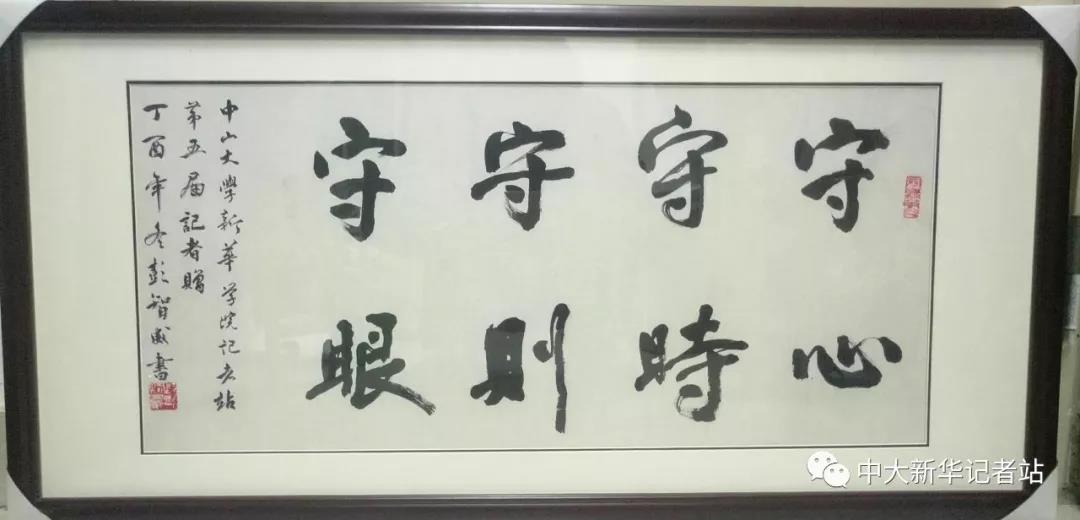 守心
守時
守則
守眼
中山大學新華学院记者站
第五届記者贈
丁酉年冬彭智威書
中大新华记者站